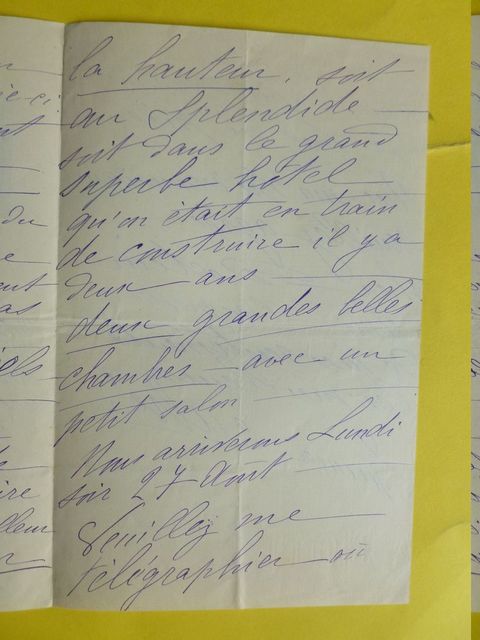 la hauteur, soit
au Splendide
soit dans le grand
superbe hôtel
qu'on était en train
de construire il y a
deux ans
deux grandes belles
chambres avec un
petit salon
Nous arriverons Lundi
soir 27 Aout
Veuillez me
télégraphier où